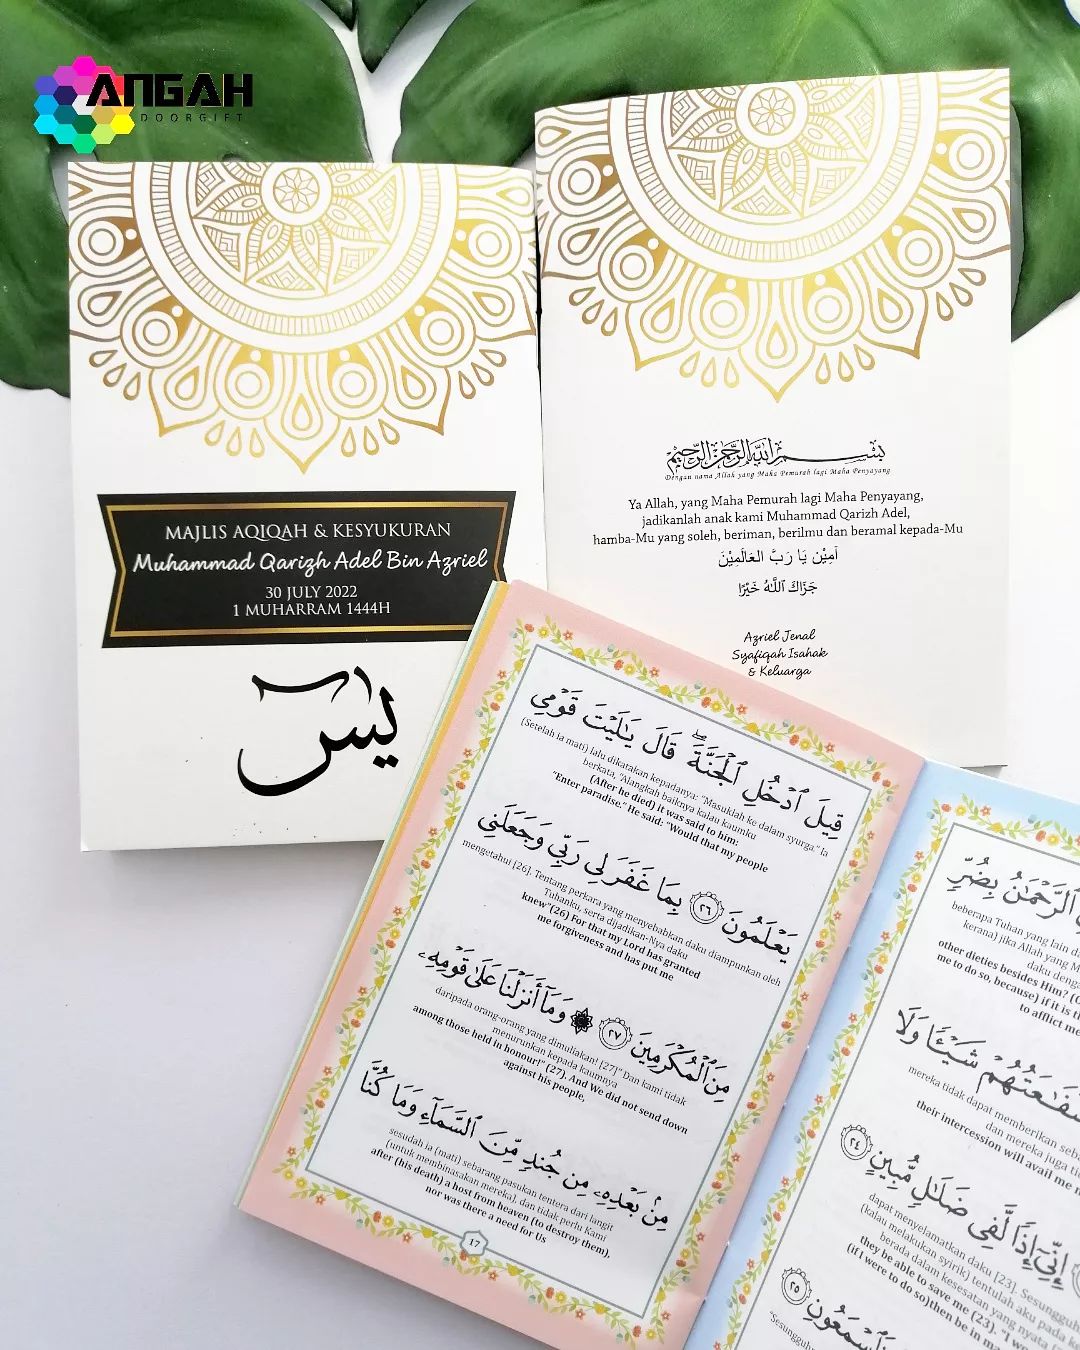 ANGAH
DOORGIFT
MAJLIS AQIQAH & KESYUKURAN
Muhammad Qarizh Adel Bin Azriel
30 JULY 2022
1 MUHARRAM 1444H
يس
بسم الله الرحمن الرحيم
Dengan nama Allah yang Maha Pemurah lagi Maha Penyayang
Ya Allah, yang Maha Pemurah lagi Maha Penyayang,
jadikanlah anak kami Muhammad Qarizh Adel,
hamba-Mu yang soleh, beriman, berilmu dan beramal kepada-Mu
اٰمِيْنَ يَا رَبَّ العَالَمِيْنَ
جَزَاكَ اللَّهُ خَيْرًا
Azriel Jenal
Syafiqah Isahak
& Keluarga
قِيلَ ٱدْخُلِ ٱلْجَنَّةَ ۖ قَالَ يَٰلَيْتَ قَوْمِى
(Setelah ia mati) lalu dikatakan kepadanya: "Masuklah ke dalam syurga." Ia
berkata, "Alangkah baiknya kalau kaumku
(After he died) it was said to him:
"Enter paradise." He said: "Would that my people
يَعْلَمُونَ ٢٦ بِمَا غَفَرَ لِى رَبِّى وَجَعَلَنِى
mengetahui [26]. Tentang perkara yang menyebabkan daku diampunkan oleh
Tuhanku, serta dijadikan-Nya daku
knew"(26) For that my Lord has granted
me forgiveness and has put me
مِنَ ٱلْمُكْرَمِينَ ٢٧ وَمَآ أَنزَلْنَا عَلَىٰ قَوْمِهِۦ
daripada orang-orang yang dimuliakan! [27]" Dan kami tidak
menurunkan kepada kaumnya
among those held in honour!" (27). And We did not send down
against his people,
مِنۢ بَعْدِهِۦ مِن جُندٍ مِّنَ ٱلسَّمَآءِ وَمَا كُنَّا
sesudah ia (mati) sebarang pasukan tentera dari langit
(untuk membinasakan mereka), dan tidak perlu Kami
after (his death) a host from heaven (to destroy them),
nor was there a need for Us
17
ٱلرَّحْمَٰنُ بِضُرٍّ
beberapa Tuhan yang lain
kerana) jika Allah yang
daku dengan
other dieties besides Him?
me to do so, because) if it is
to afflict me
شَفَٰعَتُهُمْ شَيْـًٔا وَلَا
mereka tidak dapat memberikan
dan mereka juga
their intercession will avail me
إِنِّىٓ إِذًا لَّفِى ضَلَٰلٍ مُّبِينٍ ٢٤
dapat menyelamatkan daku [23].
(kalau melakukan syirik) tentulah aku pada
berada dalam kesesatan yang nyata
they be able to save me (23). "I
(if I were to do so)then be in
٢٥